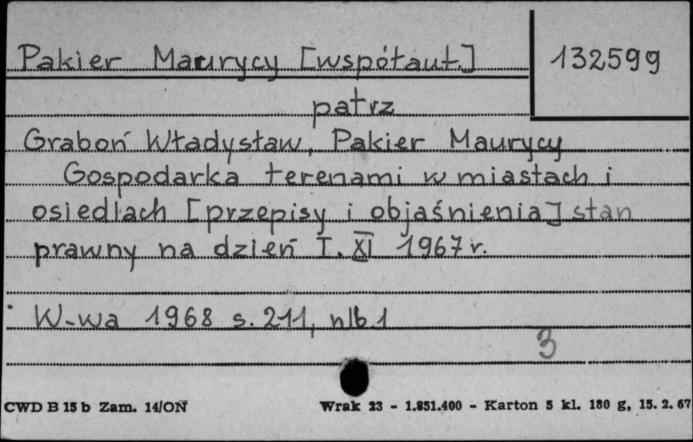 Pakier Maurycy [współaut.] 132599
patrz
Graboń Władysław, Pakier Maurycy
Gospodarka terenami w miastach i
osiedlach [przepisy i objaśnienia] stan
prawny na dzień I. XI 1967 r.
W-wa 1968 s. 211, nlb. 1
3
CWD B 15 b Zam. 14/ON Wrak 23 - 1.851.400 - Karton 5 kl. 180 g, 15. 2. 67